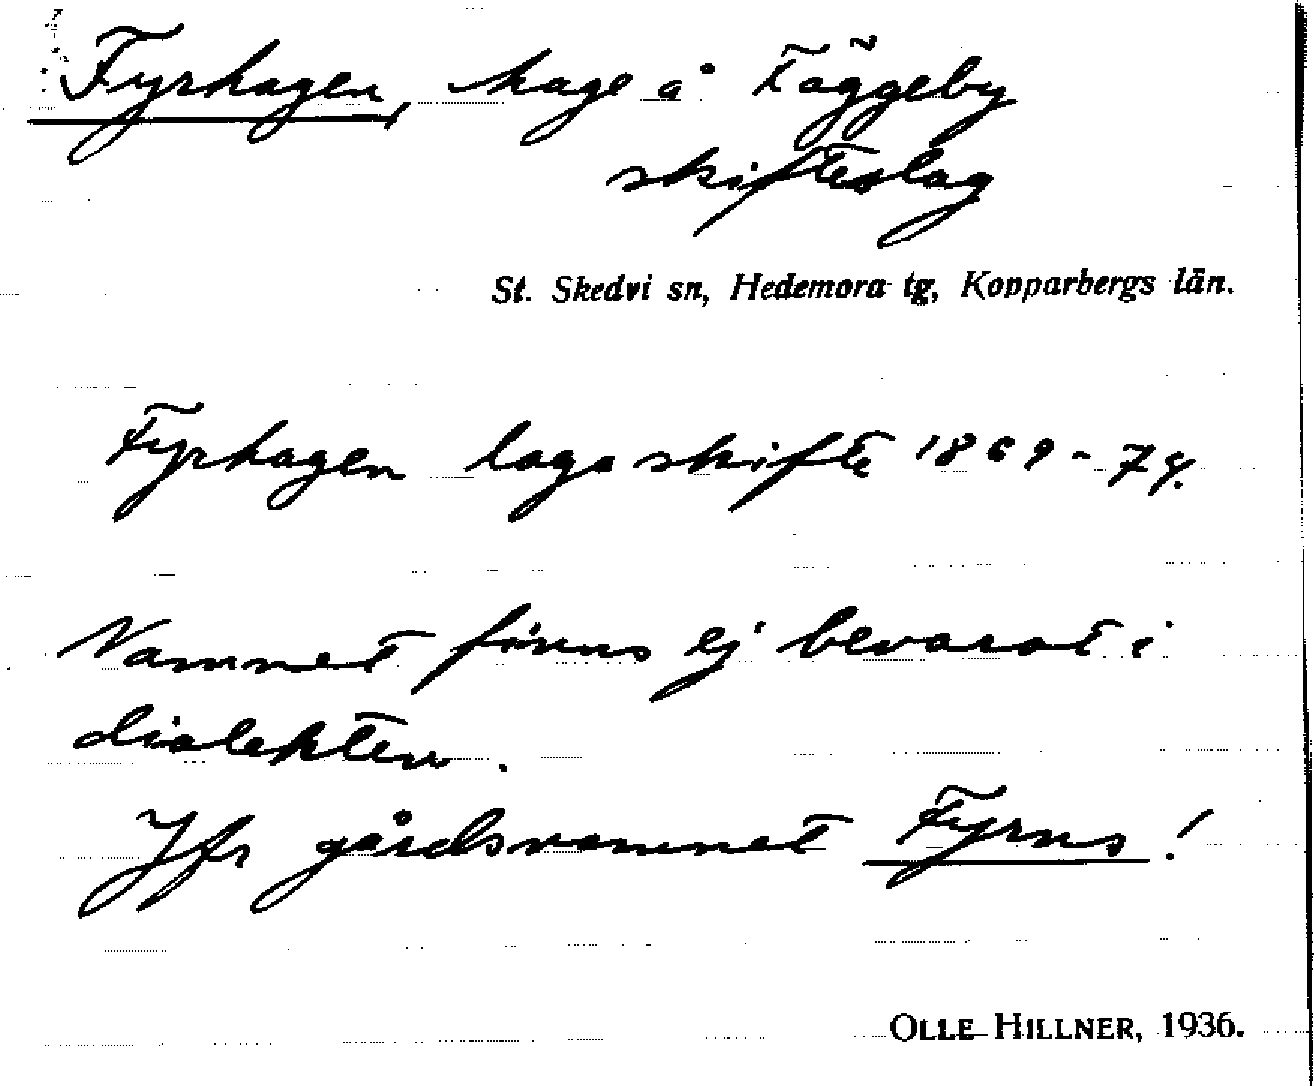 Fyrhagen, hage å Täggeby
skifteslag
St. Skedvi sn, Hedemora tg, Kopparbergs län.
Fyrhagen laga skifte 1869-74.
Namnet finns ej bevarat i
dialekten.
Jfr gårdsnamnet Fyrns!
OLLE HILLNER, 1936.